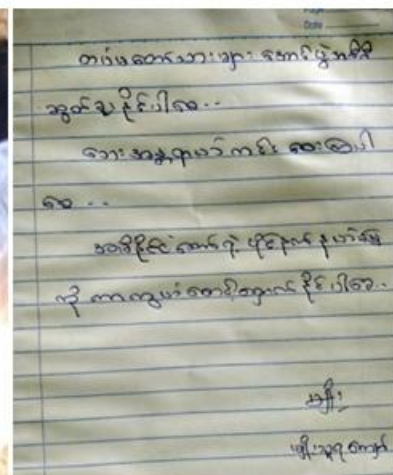 Date
တပ်မတော်သားများ အောင်ပွဲအစီစီ
ဆွတ်ခူးနိုင်ပါစေ..
ဘေးအန္တရာယ်ကင်းဝေးကြပါ
စေ..
အမိနိုင်ငံတော်ရဲ့ ပိုင်နက်နယ်မြေ
ကို ကာကွယ်စောင့်ရှောက်နိုင်ပါစေ..